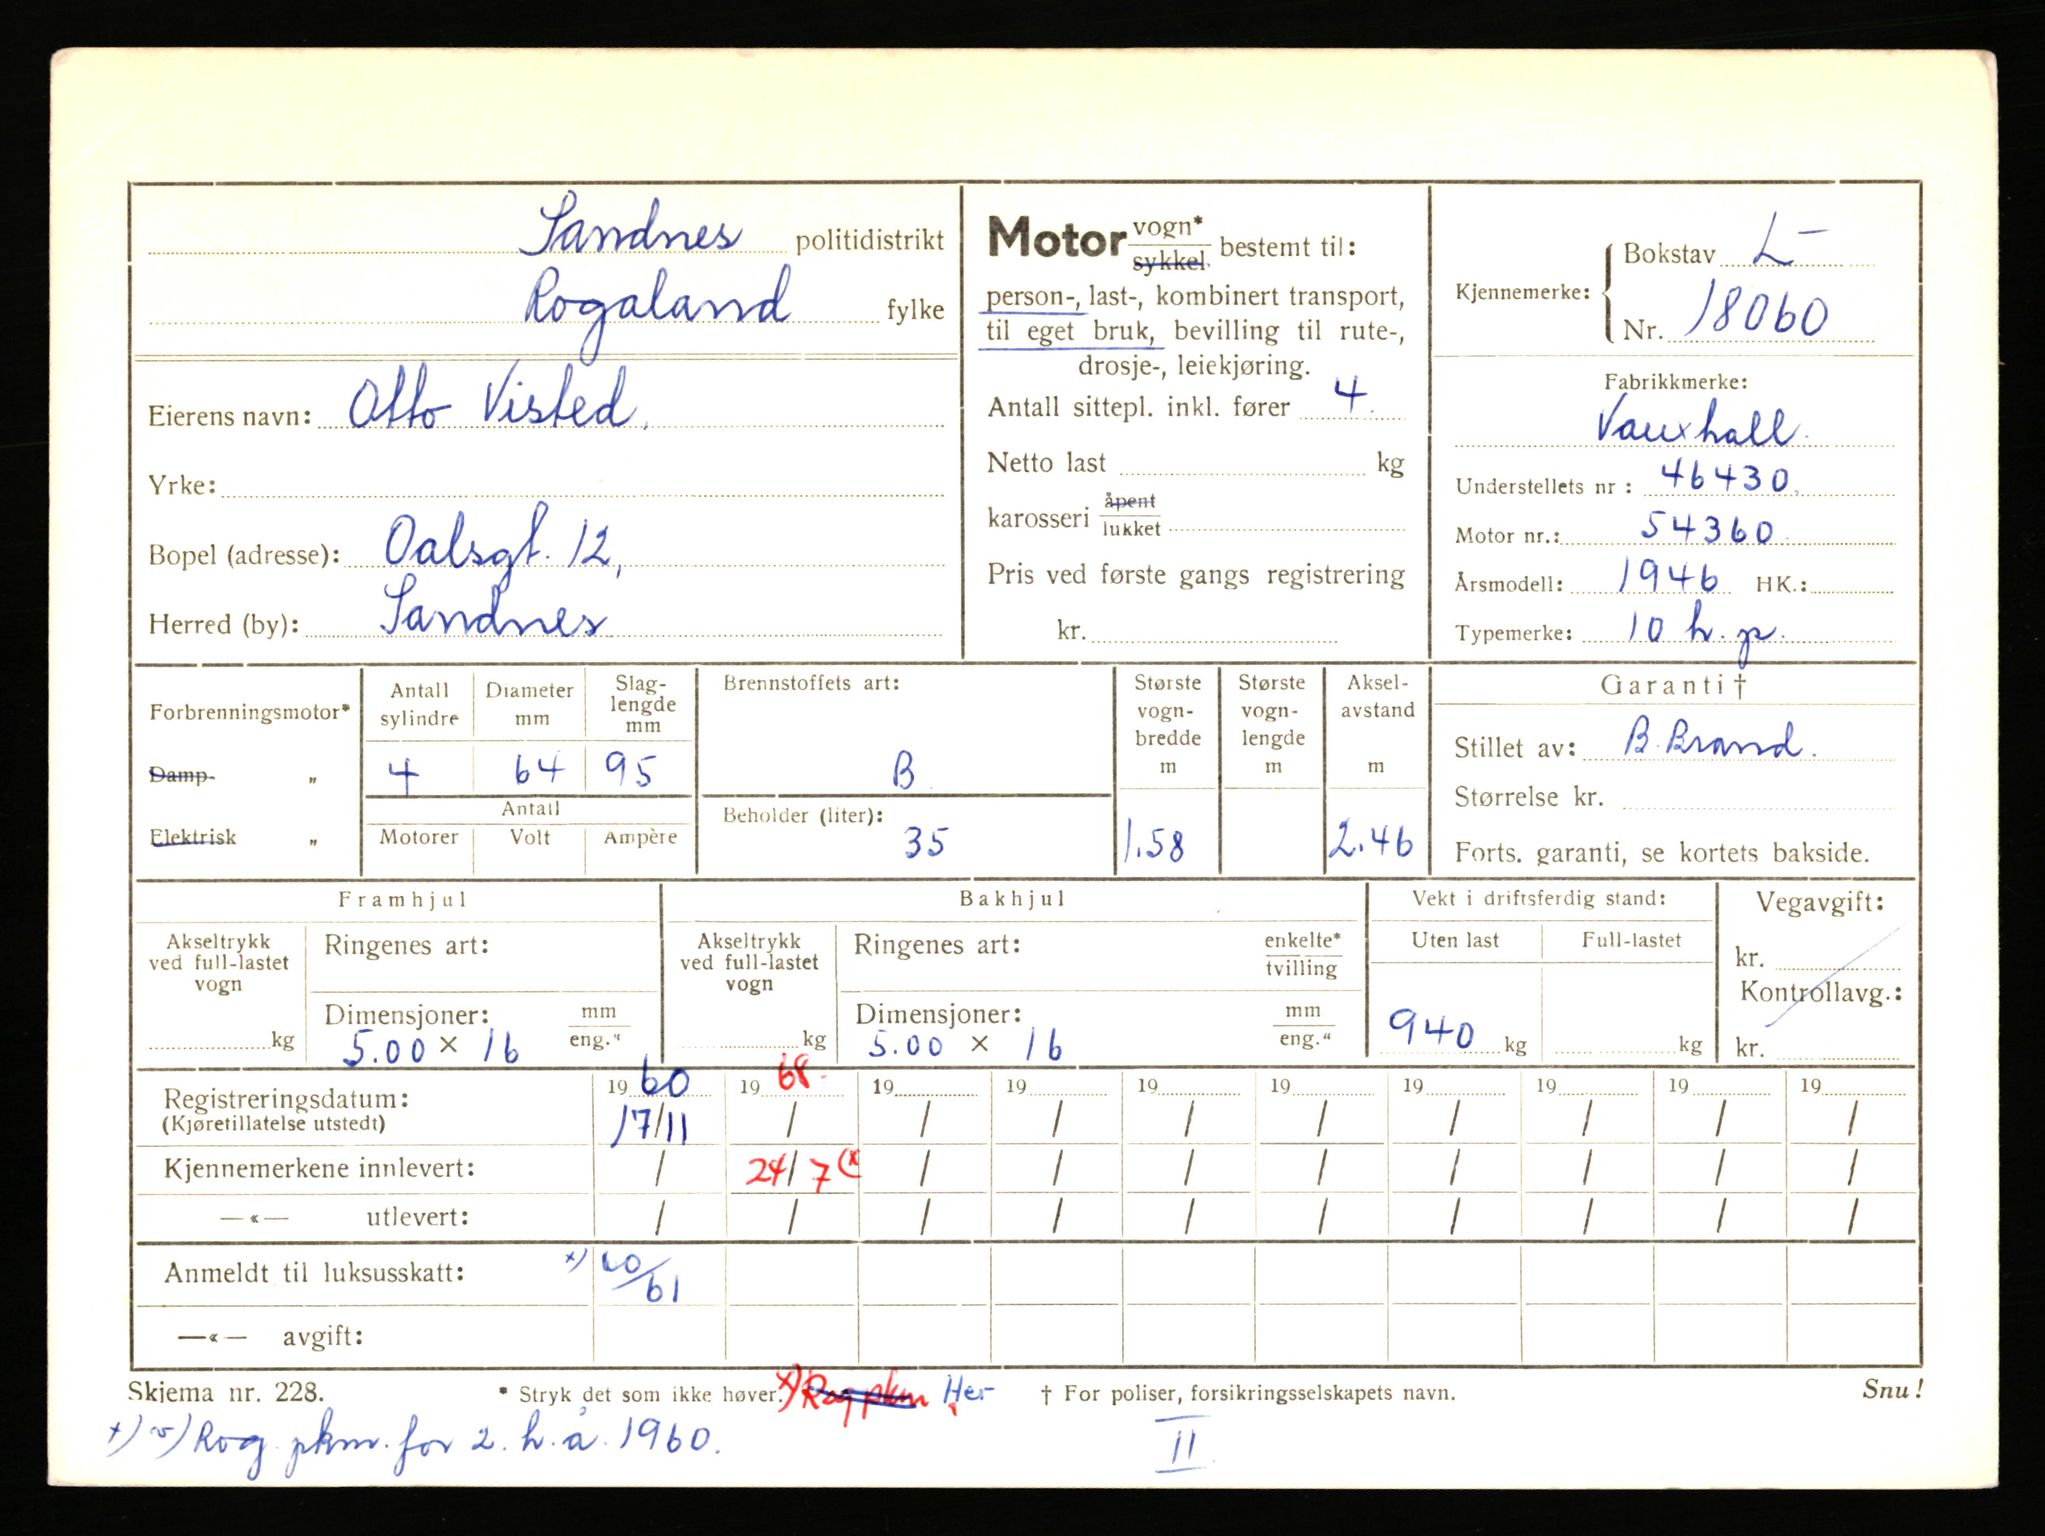 Sandnes politidistrikt
Rogaland fylke
Eierens navn: Otto Visted.
Yrke:
Bopel (adresse): Oalsgt. 12,
Herred (by): Sandnes
Motor vogn* / sykkel bestemt til:
person-, last-, kombinert transport,
til eget bruk, bevilling til rute-,
drosje-, leiekjøring.
Antall sittepl. inkl. fører 4.
Netto last kg
karosseri åpent / lukket
Pris ved første gangs registrering
kr.
Kjennemerke: Bokstav L-
Nr. 18060
Fabrikkmerke:
Vauxhall.
Understellets nr: 46430.
Motor nr.: 54360
Årsmodell: 1946 HK.:
Typemerke: 10 h.p.
Forbrenningsmotor*
Damp- „
Elektrisk „
Antall sylindre
Diameter mm
Slag-lengde mm
4 64 95
Antall
Motorer Volt Ampère
Brennstoffets art:
B
Beholder (liter):
35
Største vogn-bredde m
1.58
Største vogn-lengde m
Aksel-avstand m
2.46
Garanti †
Stillet av: B. Brand.
Størrelse kr.
Forts. garanti, se kortets bakside.
Framhjul
Akseltrykk ved full-lastet vogn
kg
Ringenes art:
Dimensjoner: mm / eng."
5.00 × 16
Bakhjul
Akseltrykk ved full-lastet vogn
kg
Ringenes art: enkelte* / tvilling
Dimensjoner: mm / eng."
5.00 × 16
Vekt i driftsferdig stand:
Uten last Full-lastet
940 kg kg
Vegavgift:
kr.
Kontrollavg.:
kr.
Registreringsdatum: 19 60 19 68. 19 19 19 19 19 19 19 19
(Kjøretillatelse utstedt) 17/11 / / / / / / / / /
Kjennemerkene innlevert: / 24/7 (x / / / / / / / /
—«— utlevert: / / / / / / / / / /
Anmeldt til luksusskatt: x) 60/61
—«— avgift:
Skjema nr. 228. * Stryk det som ikke høver. x) Rog pkm Her † For poliser, forsikringsselskapets navn. Snu!
x) v) Rog. pkm. for 2. h.å. 1960.
II